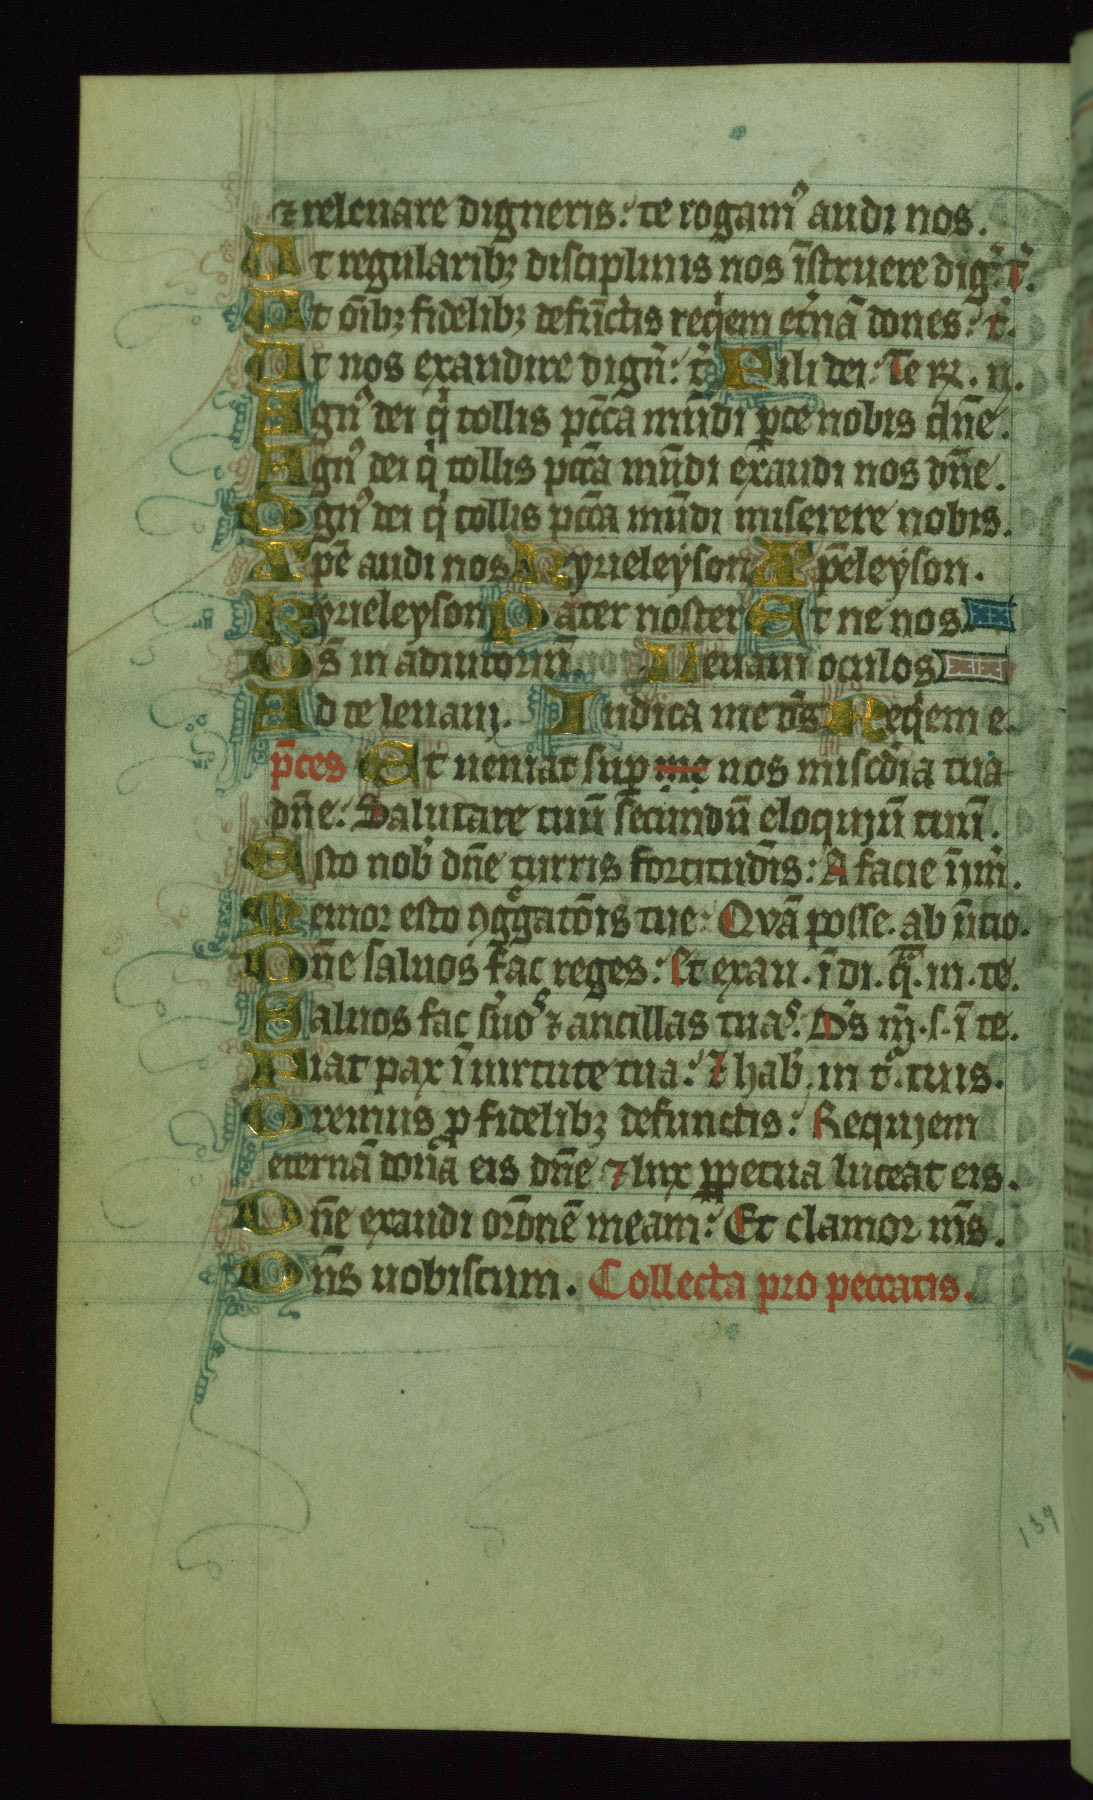 ⁊ releuare digneris: te rogamꝰ audi nos.
Ut regularibꝫ disciplinis nos īstruere dig̃: t̃.
Ut oībꝫ fidelibꝫ defūctis req̇em et̃nā dones: t̃.
Ut nos exaudire dign̄: t̃ Fili dei: Te
Agnꝰ dei q̇ tollis pccā mūdi ꝑce nobis dñe.
Agnꝰ dei q̇ tollis pccā mūdi exaudi nos dñe.
Agnꝰ dei q̇ tollis pccā mūdi miserere nobis.
Xpē audi nos Kyrieleyson Xpēleyson.
Kyrieleyson Pater noster Et ne nos
Ds̄ in adiutoriū Leuaui oculos
Ad te leuaui. Iudica me ds̄ Req̇em e.
p̄ces Et ueniat suꝑ me nos mis̄c̄dia tua
dñe: Salutare tuū secundū eloquiū tuū.
Esto nob̃ dñe turris fortitud̄is: A facie inim̃.
Memor esto ꝯg̊gatōis tue: Qvā posse. ab ītio.
Dñe saluos fac reges: Et exau. ī di. q̄. in. te.
Saluos fac s̃uos ⁊ ancillas tuas: Ds̄ m̃. s. ī te.
Fiat pax ī uirtute tua: ⁊ hab̃. in t̊. tuis.
Oremus ꝓ fidelibꝫ defunctis: Requiem
eternā dona eis dñe ⁊ lux ꝑpetua luceat eis.
Dñe exaudi orōnē meam: Et clamor m̄s.
Dñs uobiscum. Collecta pro peccatis.
139